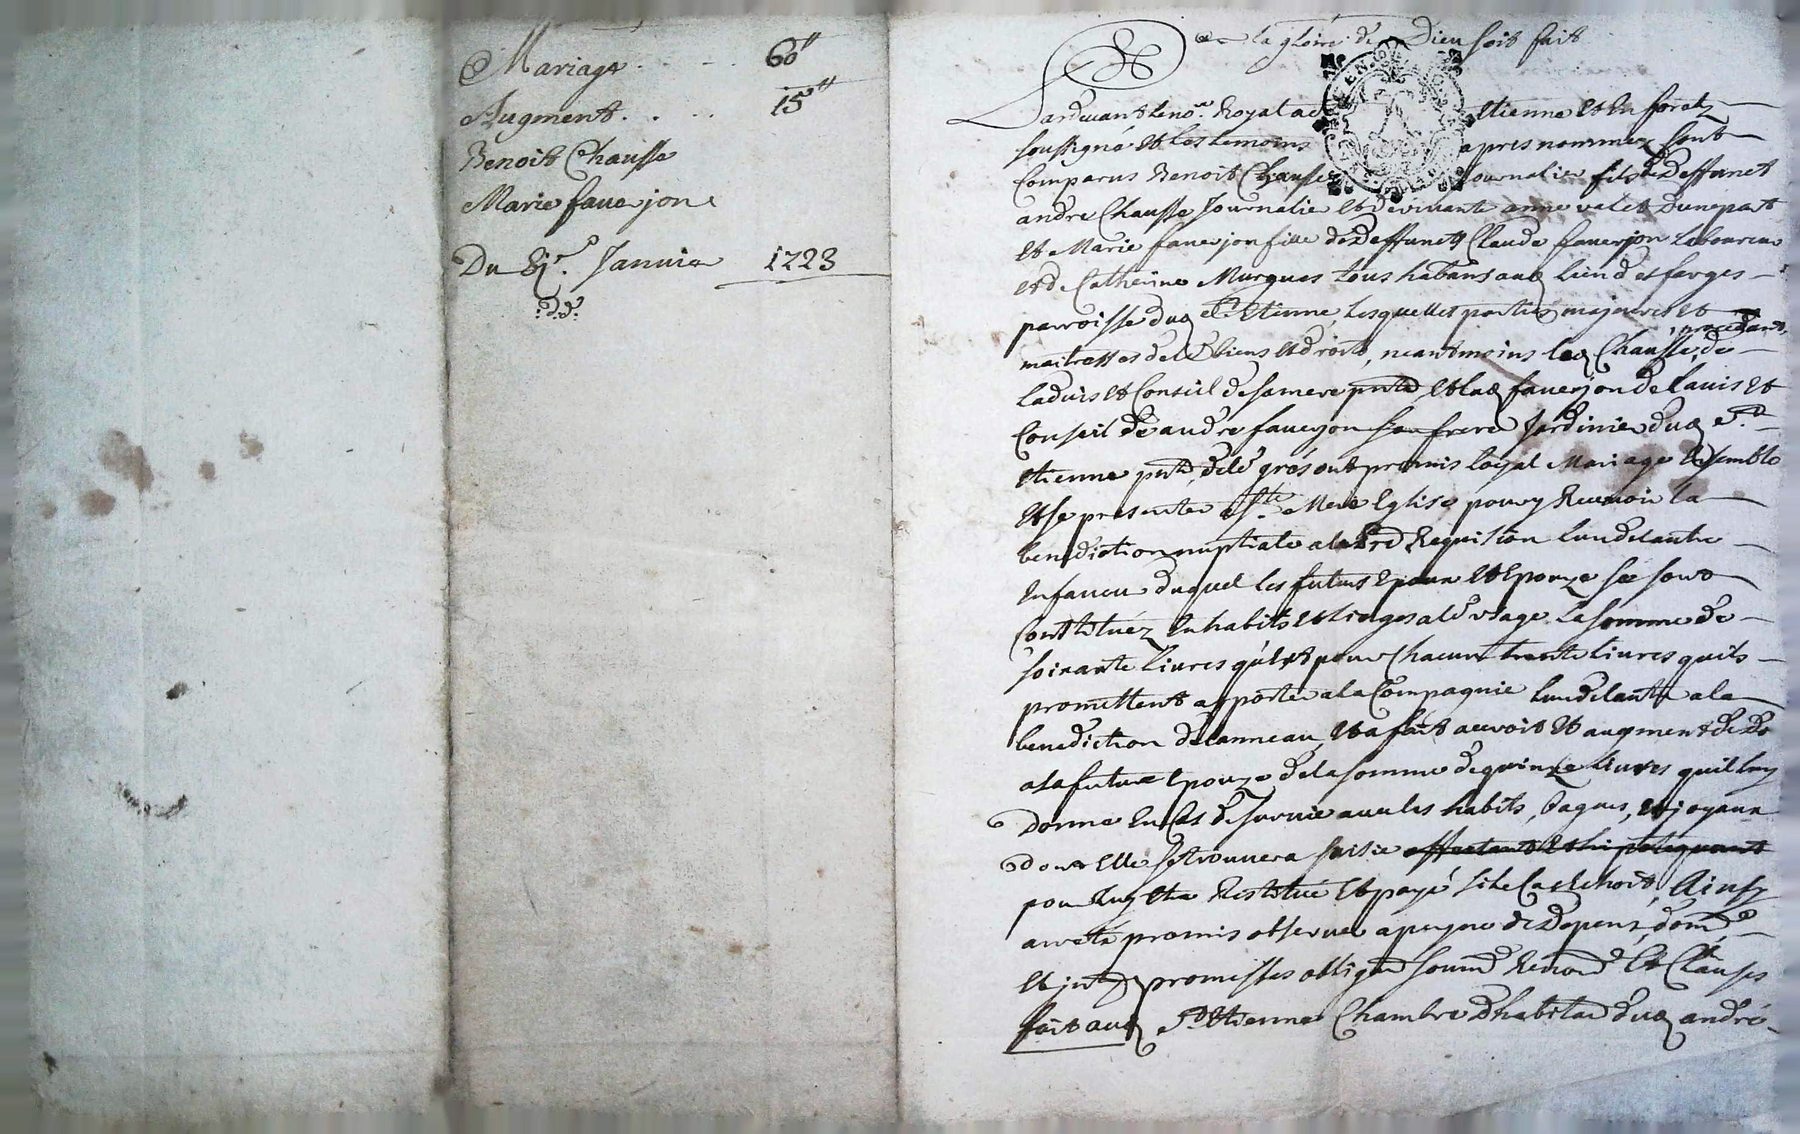 Mariage . . . . 60ᵗᵗ
Augment. . . . 15ᵗᵗ
Benoit Chausse
Marie faverjon
Du Janvier 1723
a la gloire de Dieu soit fait
Pardevant le noʳᵉ Royal a Etienne et En forets
soussigné et les temoins apres nommez sont
Comparus Benoit Chausse Journalier fils de deffunct
andre Chausse Journalier et de vivante anne valet d'une part
et Marie faverjon fille de deffuncts Claude faverjon Laboureur
et de Catherine Murgues tous habitans au lieu des farges
parroisse dud Sᵗ Etienne, Lesquelles parties majeures et
maitresses de leʳˢ biens et droits, neantmoins led Chausse, procedant de
ladvis et Conseil de sa mere pntᵉ et lad faverjon de l'avis et
Conseil de andre faverjon son frere Jardinier dud Sᵗ
Etienne pnt, de leʳ gré ont promis loyal Mariage Ensemble
et se presenter a Sᵗᵉ Mere Eglise pour y Recevoir la
benediction nuptiale a la Requisition l'un de lautre
En faveur duquel les futurs Epoux et Epouze se sont
Constituez En habits et linges a leʳ usage la somme de
soixante livres qu'est pour Chacun trente livres quils
promettent apporter a la Compagnie l'un de lautre a la
benediction de l'anneau, et a fait accroit et augment de
a la future Epouze de la somme de quinze livres quil luy
Donne En Cas de survie avec les habits, bagues, et joyaux
dont Elle se trouvera saisie affectant et hipotequant
pour luy Etre Restitué et payé si le Cas Echoit, Ainsy
arreté promis observer a peyne de Depens, domᵉˢ
et jntᵗˢ promesses obligᵒⁿ soumᵒⁿ Renonᵒⁿ et Clauses
fait aud Sᵗ Etienne Chambre d'habitaᵒⁿ dud andré